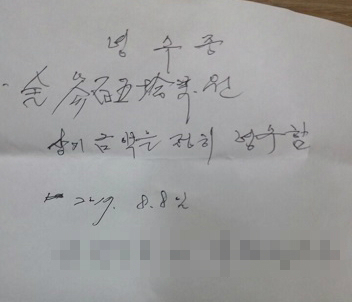 영 수 증
金 参百五拾萬원
상기 금액은 정히 영수함
2019. 8. 8일